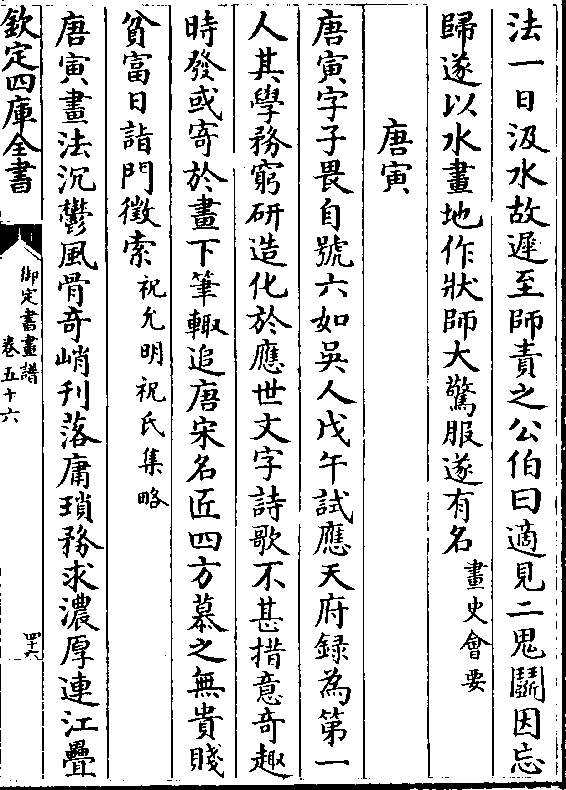 法一日汲水故遲至師責之公伯曰適見二鬼鬭因忘
歸遂以水畫地作狀師大驚服遂有名畫史會要
唐寅
唐寅字子畏自號六如吳人戊午試應天府録為第一
人其學務窮研造化於應世文字詩歌不甚措意奇趣
時發或寄於畫下筆輙追唐宋名匠四方慕之無貴賤
貧富日詣門徵索祝允明祝氏集略
唐寅畫法沉鬱風骨奇峭刋落庸瑣務求濃厚連江疊
欽定四庫全書
御定書畫譜
卷五十六
四十六